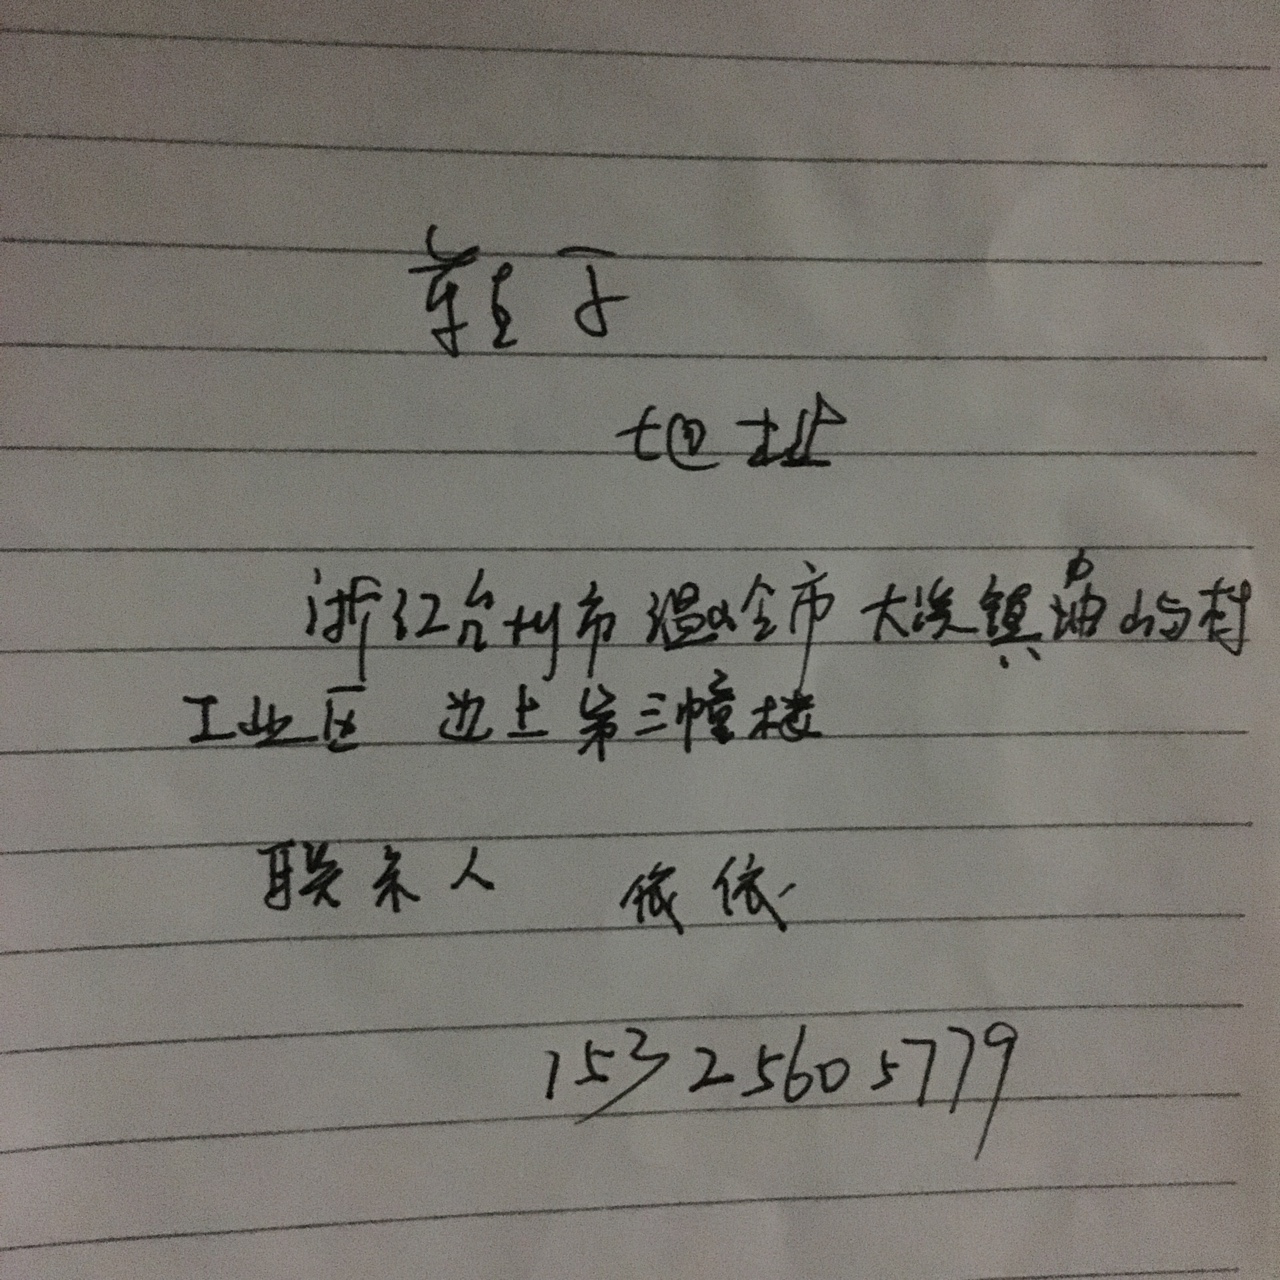 鞋子
地址
浙江台州市温岭市大溪镇油屿村
工业区 边上第三幢楼
联系人 依依
15325605779